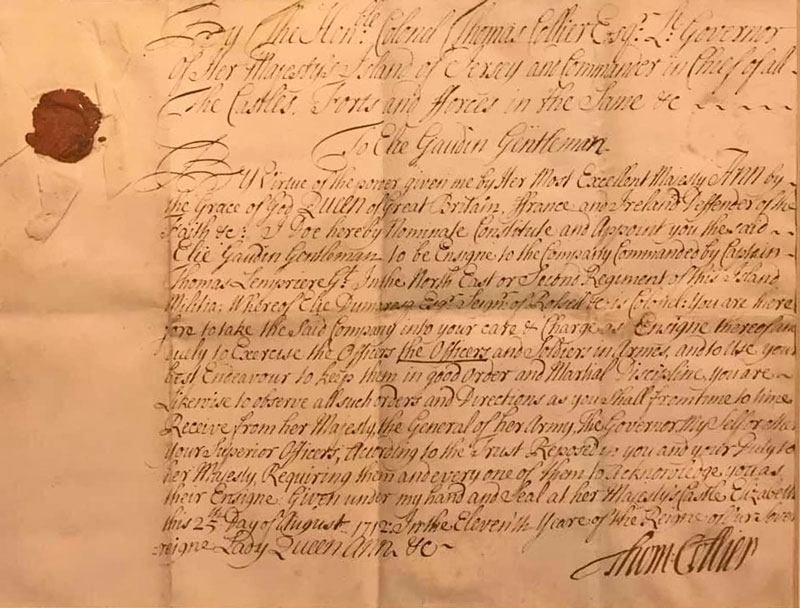 By The Hon:ble Colonel Thomas Collier Esqr. Lt. Governor
of Her Majestys Island of Jersey and Commander in Chief of all
The Castles, Forts and fforces in the Same &c
To Elie Gaudin Gentleman.
By Virtue of the power given me by Her Most Excellent Majesty Ann by
the Grace of God Queen of Great Britain, ffrance and Ireland Deffender of the
Faith &c: I Doe hereby Nominate Constitute and Appoint you the said
Elie Gaudin Gentleman to be Ensigne to the Company Commanded by Captain
Thomas Lempriere Gt. In the North East or Second Regiment of this Island
Militia: Whereof Elie Dumaresq Esqr. Seignr. of &c: is Colonel: You are there
fore to take the Said Company into your care & Charge as Ensigne thereof and
Duely to Exercise the Officers the Officers and Soldiers in Armes, and to Use your
best Endeavour to keep them in good Order and Martial Discipline, you are
Likewise to observe all such orders and Directions as you shall from time to time
Receive from her Majesty, the General of her Army, The Governor, My Self or other
your Superior Officers, According to the Trust Reposed in you and your Duty to
her Majesty, Requiring them and every one of them to Acknowledge you as
their Ensigne: Given under my hand and Seal at her Majestys Castle Elizabeth
this Day of August 1712: In the Eleventh Yeare of the Reigne of our Sover
reigne Lady Queen Ann. &c
Thom: Collier